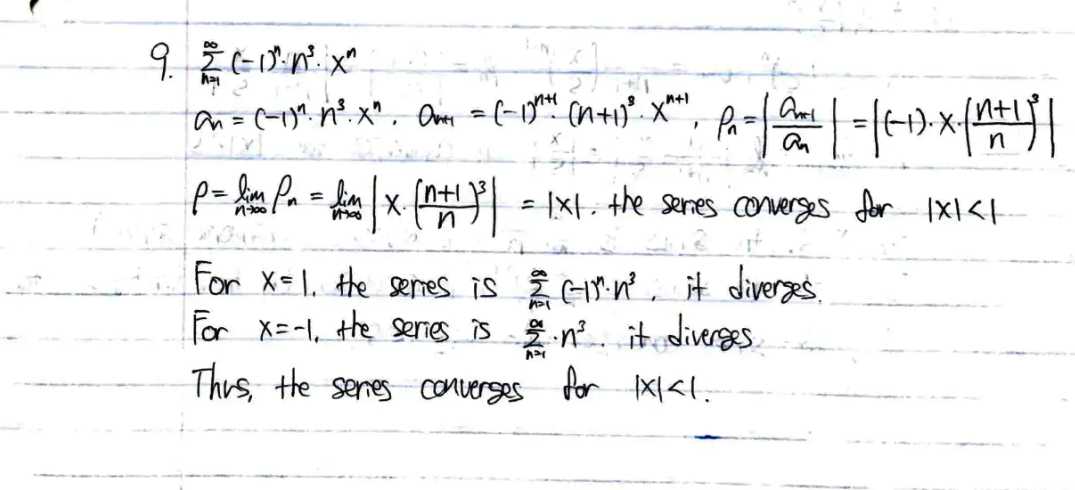 9. $\sum_{n=1}^{\infty} (-1)^n \cdot n^3 \cdot x^n$
$a_n = (-1)^n \cdot n^3 \cdot x^n, \ a_{n+1} = (-1)^{n+1} \cdot (n+1)^3 \cdot x^{n+1}, \ \rho_n = \left| \frac{a_{n+1}}{a_n} \right| = \left| (-1) \cdot x \cdot \left( \frac{n+1}{n} \right)^3 \right|$
$\rho = \lim_{n \to \infty} \rho_n = \lim_{n \to \infty} \left| x \cdot \left( \frac{n+1}{n} \right)^3 \right| = |x|$. the series converges for $|x| < 1$
For $x = 1$, the series is $\sum_{n=1}^{\infty} (-1)^n \cdot n^3$, it diverges.
For $x = -1$, the series is $\sum_{n=1}^{\infty} \cdot n^3$. it diverges
Thus, the series converges for $|x| < 1$.